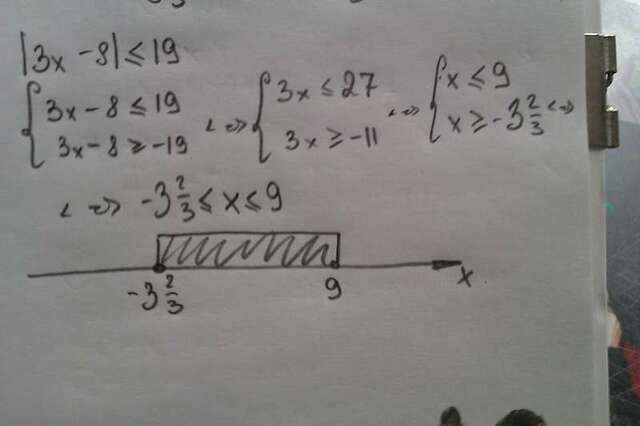 |3x - 8| ≤ 19
{ 3x - 8 ≤ 19
3x - 8 ≥ -19 <=> { 3x ≤ 27
3x ≥ -11 <=> { x ≤ 9
x ≥ -3 2/3 <=>
<=> -3 2/3 ≤ x ≤ 9
-3 2/3 9 x